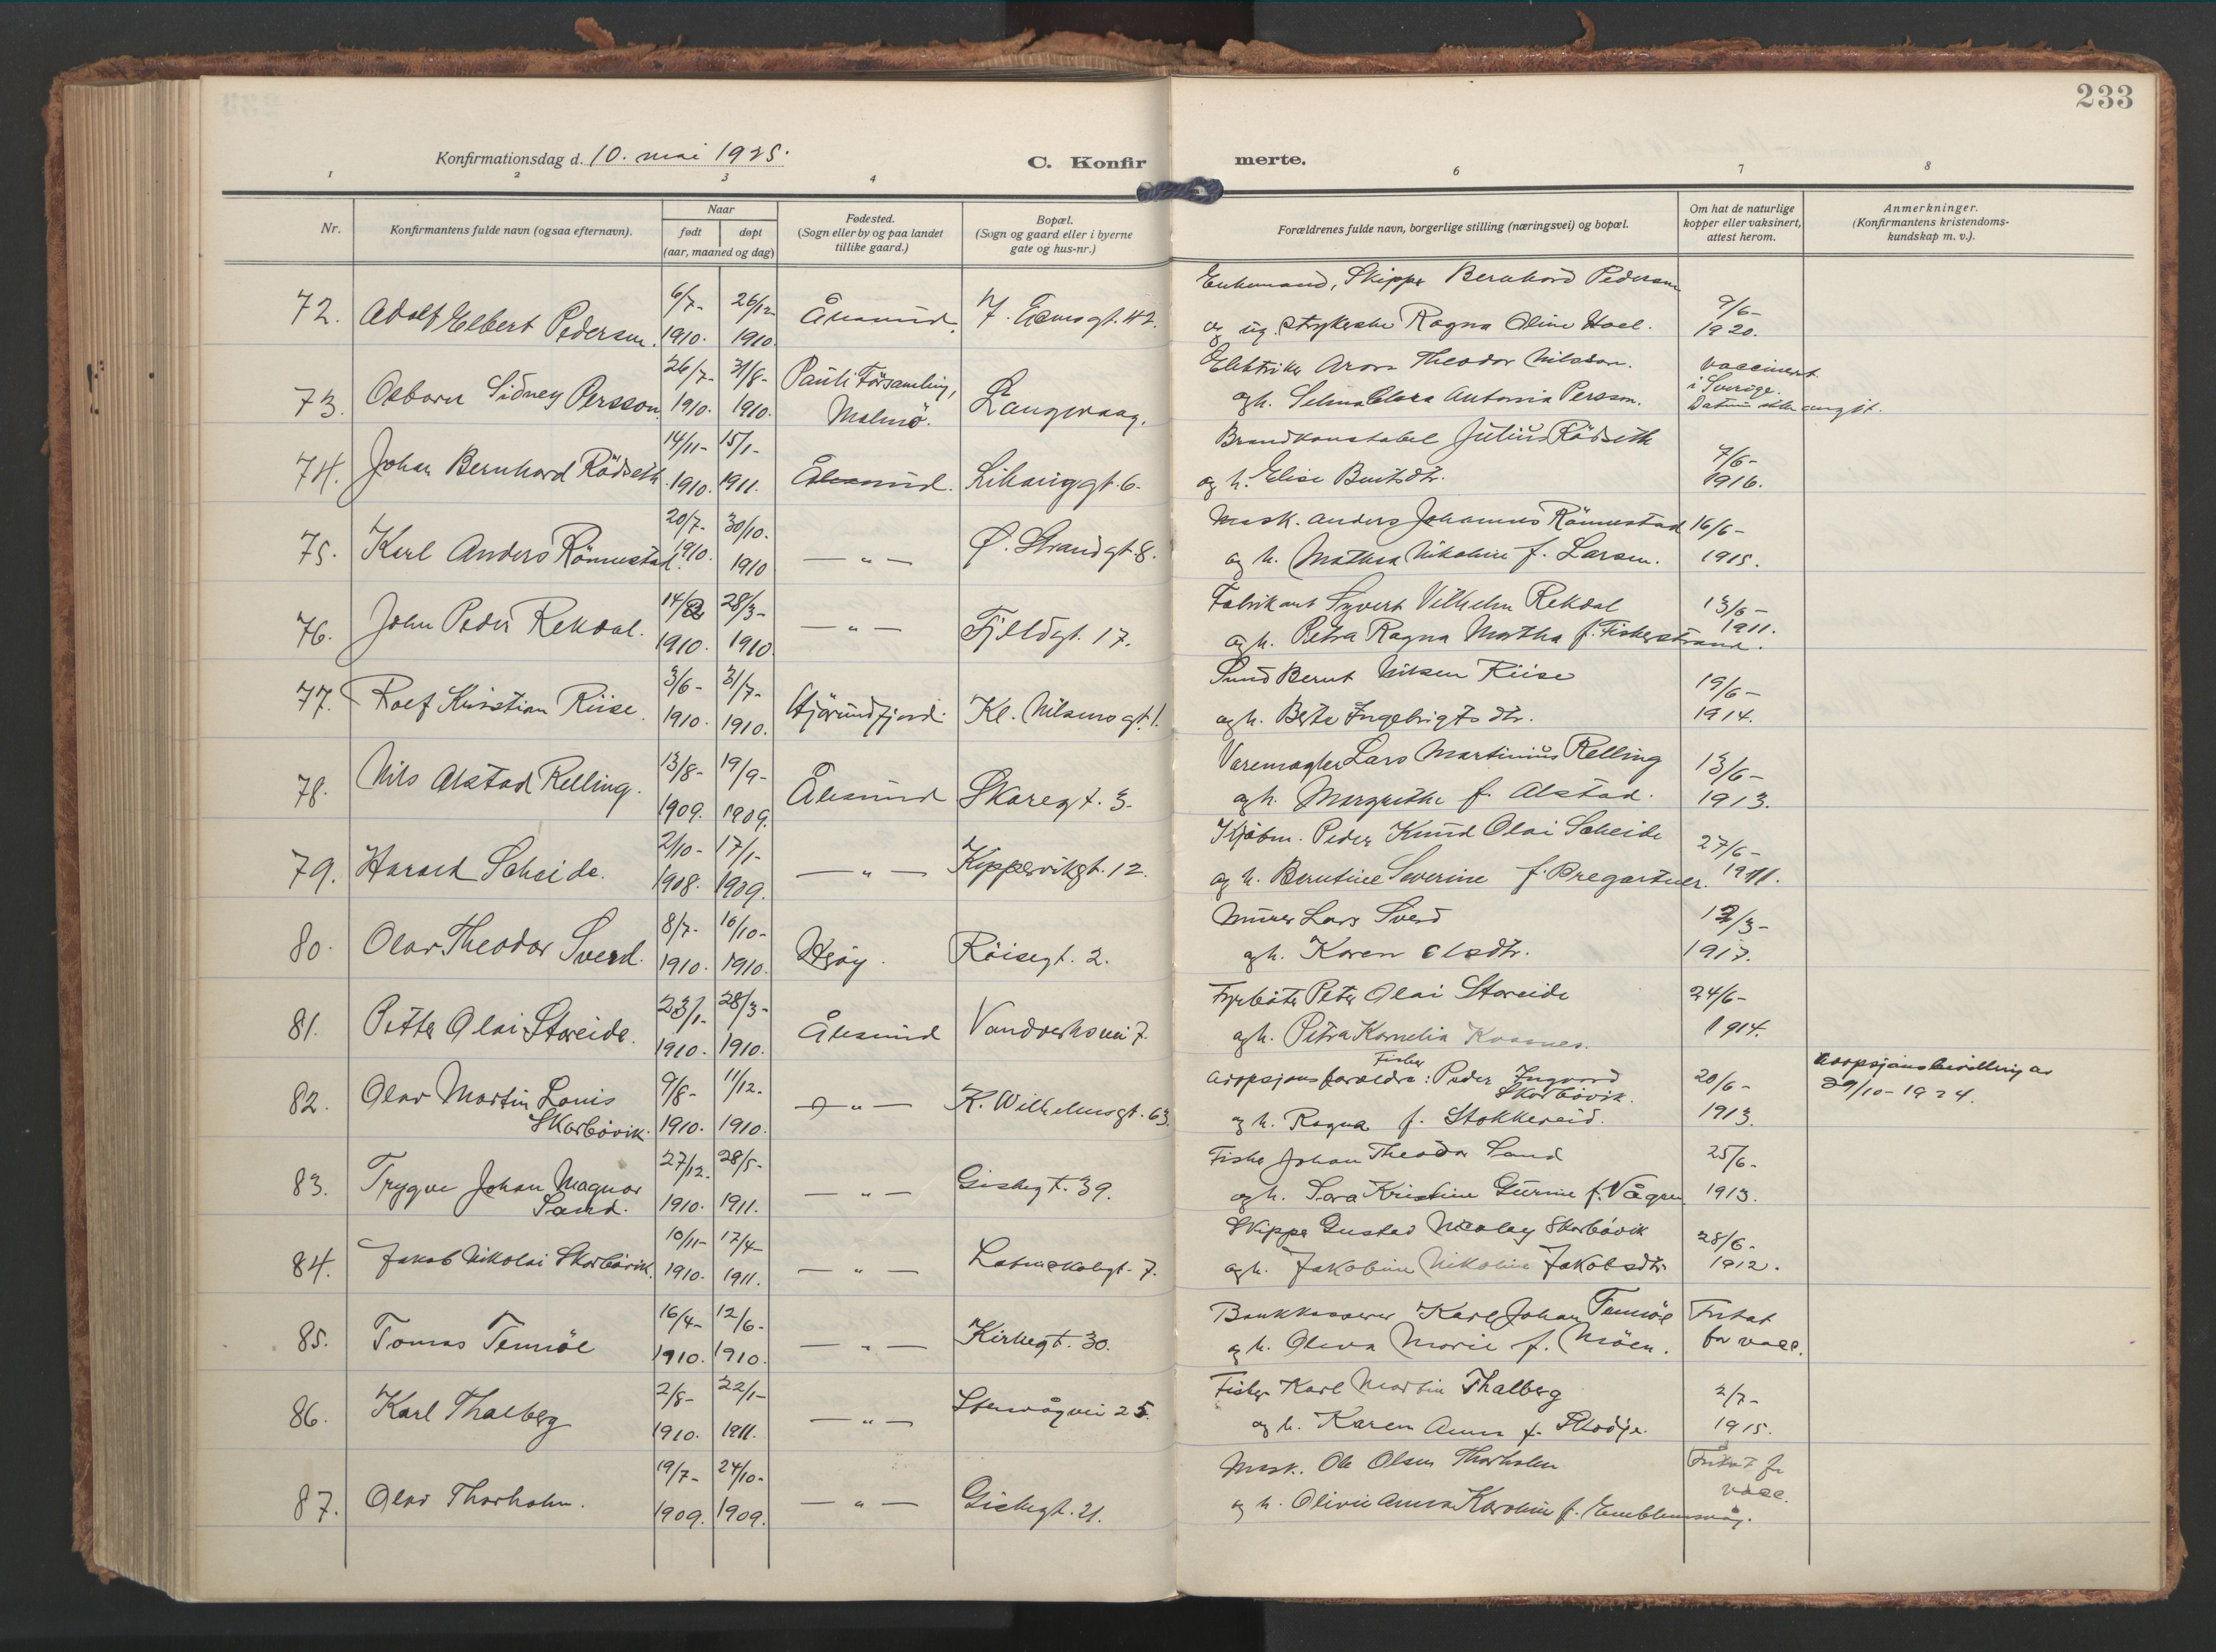 233
Konfirmationsdag d. 10. mai 1925.
C. Konfirmerte.
1 2 3 4 6 7 8
Nr.
Konfirmantens fulde navn (ogsaa efternavn).
Naar
født døpt
(aar, maaned og dag)
Fødested.
(Sogn eller by og paa landet
tillike gaard.)
Bopæl.
(Sogn og gaard eller i byerne
gate og hus-nr.)
Forældrenes fulde navn, borgerlige stilling (næringsvei) og bopæl.
Om hat de naturlige
kopper eller vaksinert,
attest herom.
Anmerkninger.
(Konfirmantens kristendoms-
kundskap m. v.).
Enkemand, Skipper Bernhard Pedersen
72. Adolf Elbert Pedersen. 6/7- 1910. 26/12 1910. Ålesund. 42. 9/6- 1920.
og ug. strykerske Ragna Oline Hoel.
Elektriker Aron Theodor Nilsson. vaccinert
73. Osborn Sidney Persson 26/7- 1910. 31/8- 1910. Pauli Församling, Malmö. Langevaag. i Sverige.
og h. Selma Clara Antonia Persson. Datum ikke angit.
Brandkonstabel Julius Rödseth
74. Johan Bernhard Rödseth 14/11- 1910. 15/1- 1911. Ålesund. Lihauggt. 6. 7/6- 1916.
og h. Elise Berntsdtr.
Mask. Anders Johannes Rönnestad 16/6-
75. Karl Anders Rönnestad 20/7- 1910. 30/10. 1910 — " — Ø. Strandgt. 8.
og h. Mathea Nikoline f. Larsen. 1915.
Fabrikant Syvert Vilhelm Rekdal 13/6- 1911.
76. John Peder Rekdal. 14/2 1910. 28/3- 1910. — " — Fjeldgt. 17.
og h. Petra Ragna Martha f. Fiskerstrand.
Bernt Nilsen Riise 19/6-
77. Rolf Kristian Riise. 3/6- 1910. 31/7- 1910. Hjörundfjord. Kl. Nilsensgt. 1.
og h. Berte Ingebrigtsdtr. 1914.
Varemægler Lars Martinius Relling 13/6-
78. Nils Alstad Relling. 13/8- 1909. 19/9- 1909. Ålesund Skaregt. 3.
og h. Margrethe f. Alstad. 1913.
Kjøbm. Peder Knud Olai Scheide 27/6-
79. Harald Scheide. 2/10- 1908. 17/1- 1909. — " — Kippervikgt. 12.
og h. Berntine Severine f. Bregartner. 1911.
Murer Lars Sverd
80. Olav Theodor Sverd. 8/7- 1910. 16/10- 1910. Röisegt. 2. 1917.
og h. Karen Olsdtr.
Fyrböter Peter Olai Storeide 24/6-
81. Petter Olai Storeide. 23/1- 1910. 28/3- 1910. Ålesund 1914.
og h. Petra Kornelia
Adopsjonsforældre: Fisker Peder Ingvard Skorbövik. 20/6- Adopsjonsbevilling av
82. Olav Martin Louis Skarbövik. 9/8- 1910. 11/12. 1910. — " — K. Wilhelmsgt. 63. 29/10-1924.
og h. Ragna f. Stokkereid. 1913.
Fisker Johan Theodor Sand 25/6-
83. Trygve Johan Magnar Sand. 27/12. 1910. 28/5- 1911. — " — Giskegt. 39.
og h. Sara Kristine Gurine f. Vågen 1913.
Skipper Gustav Nicolay Skorbövik 28/6-
84. Jakob Nikolai Skorbövik. 10/11- 1910. 17/4- 1911. — " — Latinskolegt. 7.
og h. Jakobine Nikoline Jakobsdtr 1912.
Bankkasserer Karl Johan Tennöe Fritat
85. Tomas Tennöe 16/4- 1910. 12/6- 1910. — " — Kirkegt. 30.
og h. Olava Marie f. Möen. for vacc.
Fisker Karl Martin Thalberg 2/7-
86. Karl Thalberg 2/8- 1910. 22/1- 1911. — " — Stenvågvei 25.
og h. Karen Anna f. Skodje. 1915.
Mask. Ole Olsen Thorholm Fritat for vacc.
87. Olav Thorholm. 19/7- 1909. 24/10- 1909. — " — Giskegt. 21.
og h. Olivie Anna Karoline f. Emblemsvåg.